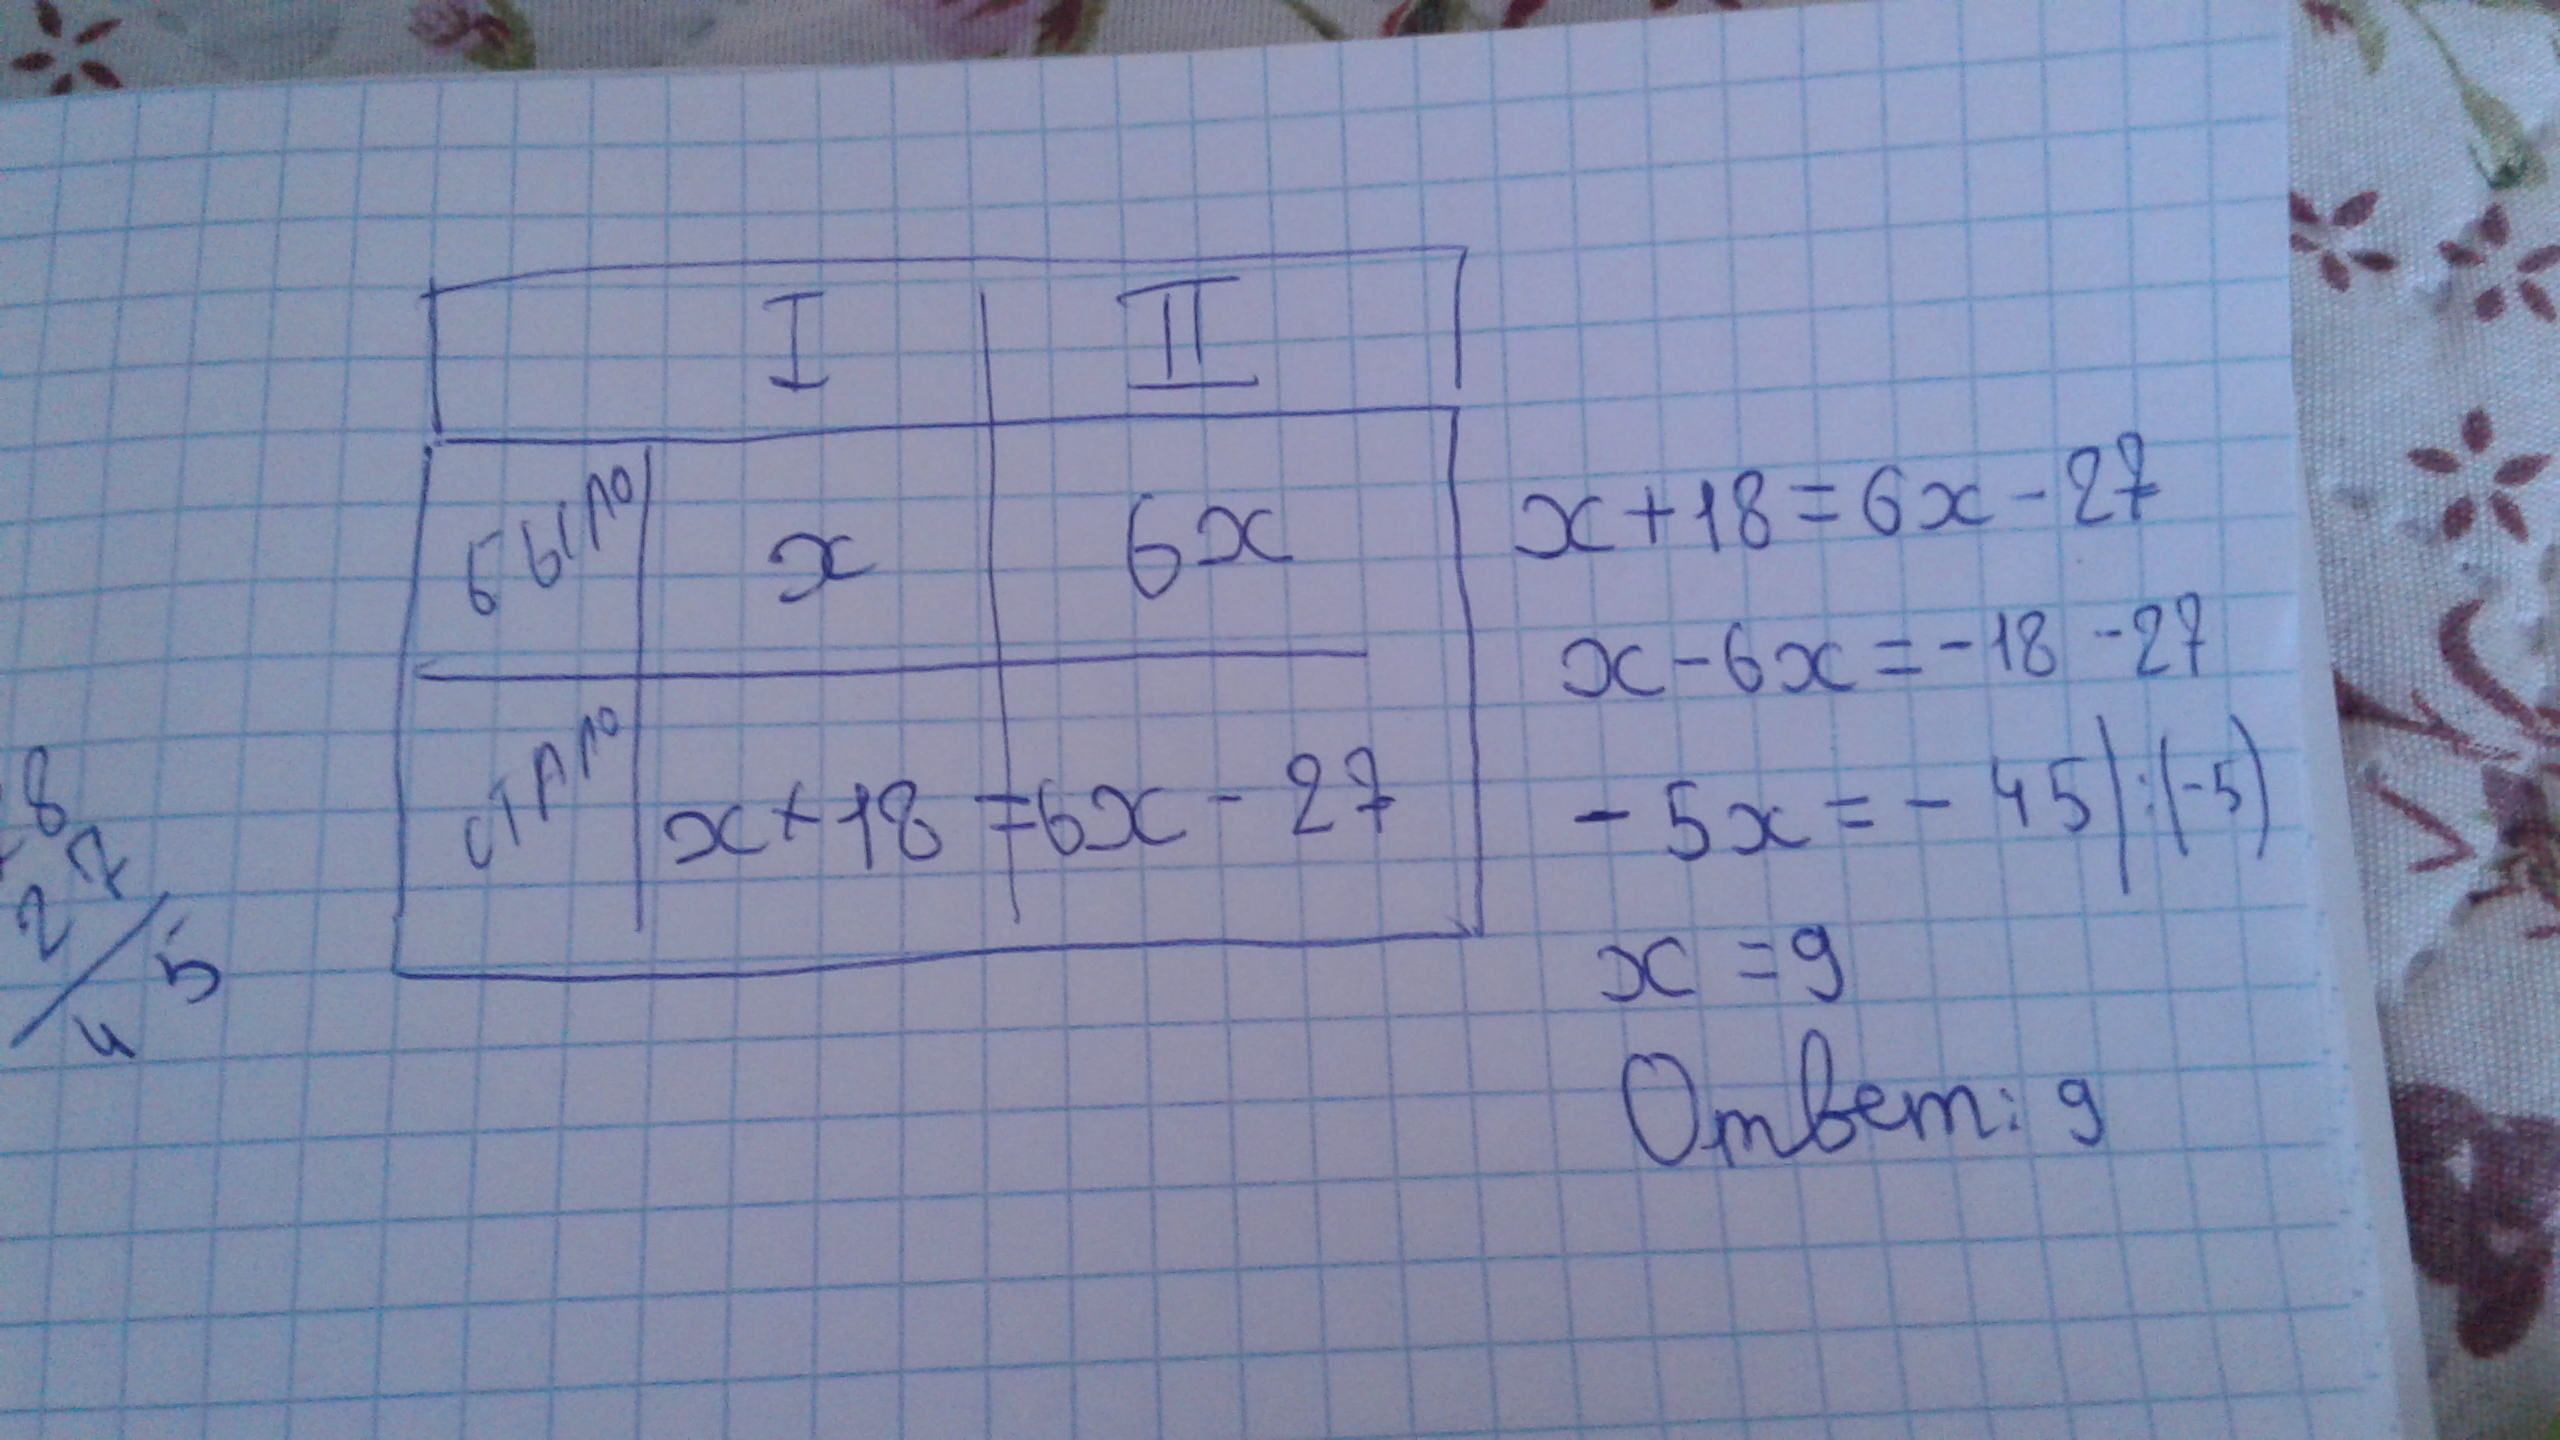 I II
было x 6x
стало x+18 =6x-27
x+18=6x-27
x-6x=-18-27
-5x=-45|:(-5)
x=9
Ответ: 9
18
27
45